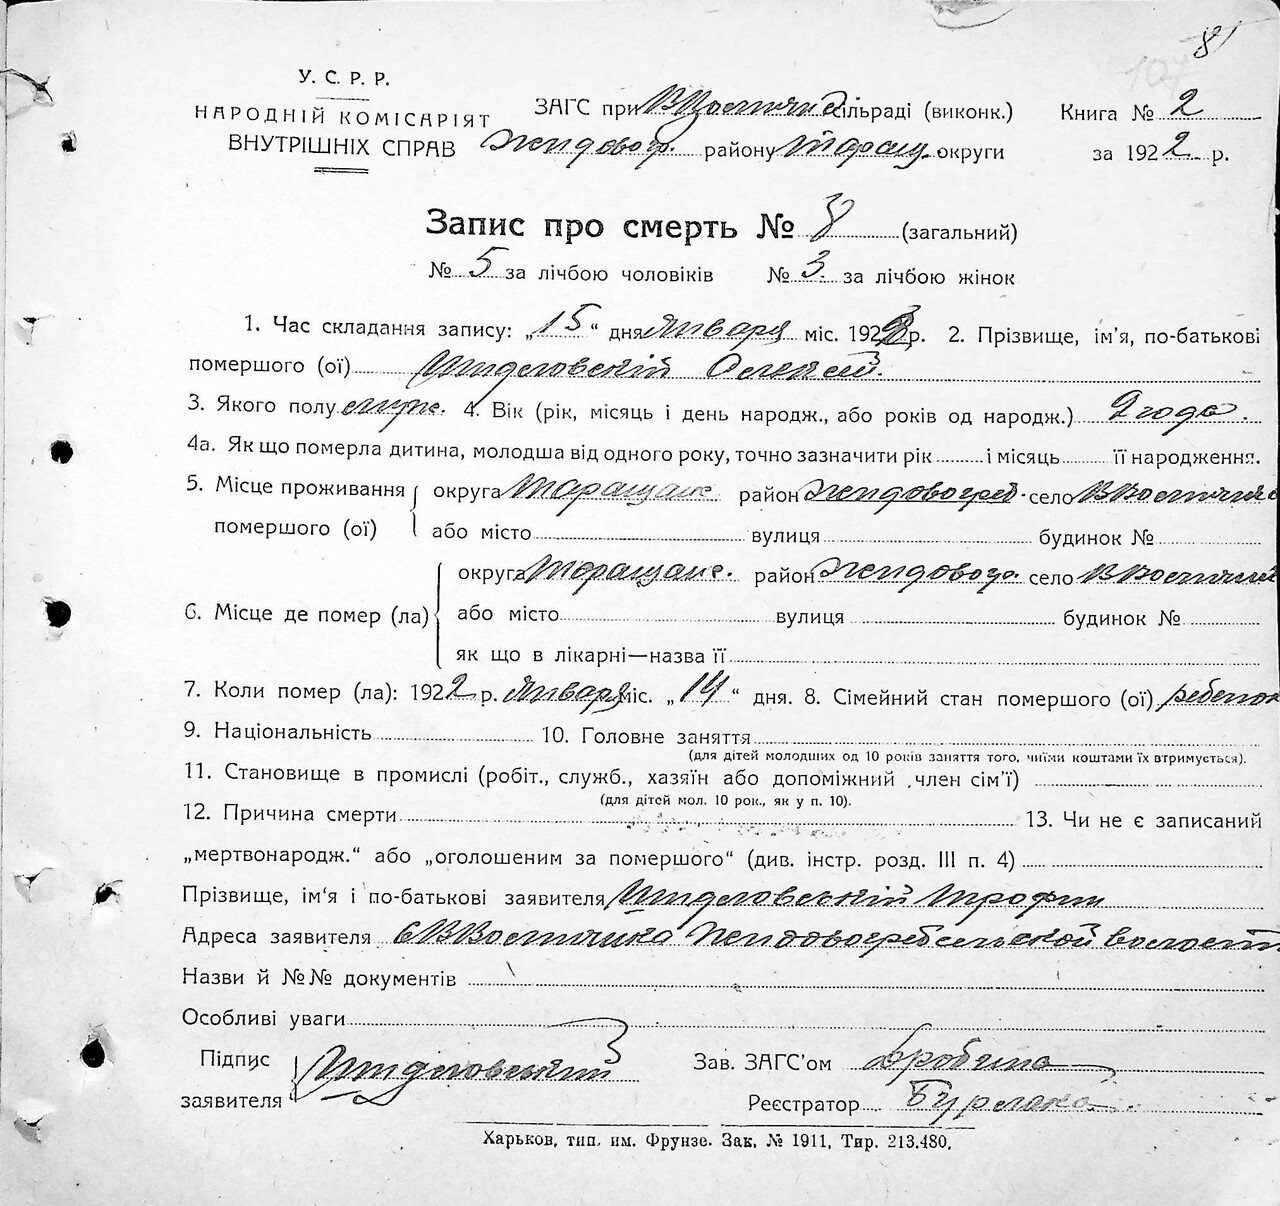 8
107
У. С. Р. Р.
НАРОДНІЙ КОМІСАРІЯТ
ВНУТРІШНІХ СПРАВ
ЗАГС при сільраді (виконк.)
району Таращ. округи
Книга № 2
за 1922 р.
Запис про смерть № 8 (загальний)
№ 5 за лічбою чоловіків № 3. за лічбою жінок
1. Час складання запису: „15“ дня Января міс. 192 р. 2. Прізвище, ім’я, по-батькові
помершого (ої) Алексей.
3. Якого полу муж. 4. Вік (рік, місяць і день народж., або років од народж.) 2 года.
4а. Як що померла дитина, молодша від одного року, точно зазначити рік і місяць її народження.
5. Місце проживання помершого (ої) округа Таращанс. район село
або місто вулиця будинок №
6. Місце де помер (ла) округа Таращанс. район село
або місто вулиця будинок №
як що в лікарні—назва її
7. Коли помер (ла): 1922 р. Января міс. „14“ дня. 8. Сімейний стан помершого (ої) ребенок
9. Національність 10. Головне заняття
(для дітей молодших од 10 років заняття того, чиїми коштами їх втримується).
11. Становище в промислі (робіт., служб., хазяїн або допоміжний член сім’ї)
(для дітей мол. 10 рок., як у п. 10).
12. Причина смерти 13. Чи не є записаний
„мертвонародж.“ або „оголошеним за помершого“ (див. інстр. розд. III п. 4)
Прізвище, ім‘я і по-батькові заявителя Трофим
Адреса заявителя
Назви й №№ документів
Особливі уваги
Підпис заявителя
Зав. ЗАГС’ом
Реєстратор Бурлака
Харьков, тип. им. Фрунзе. Зак. № 1911, Тир. 213.480.